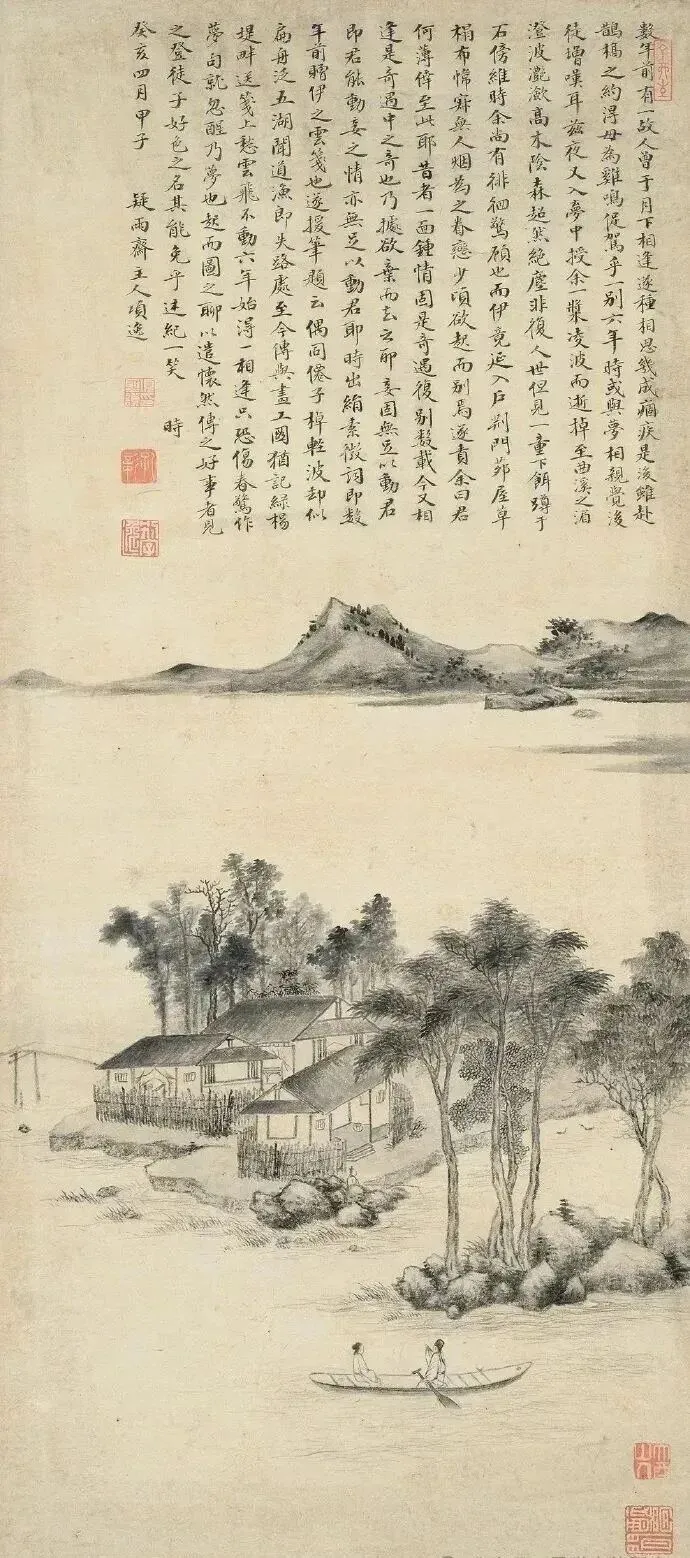 數年前有一故人曾于月下相逢遂種相思幾成痼疾是後雖赴
鵲橋之約得毋為雞鳴促駕乎一別六年時或與夢相親覺後
徒增嘆耳茲夜又入夢中授余一槳凌波而逝掉至曲溪之湄
澄波灔潋高木陰森超然絕塵非復人世但見一童下餌蹲于
石傍維時余尚有徘徊驚顧也而伊竟延入戶荆門茆屋草
榻布幃寂無人烟為之眷戀少頃欲起而別焉遂責余曰君
何薄倖至此耶昔者一面鍾情固是奇遇復別數載今又相
逢是奇遇中之奇也乃據欲棄而去之耶妾固無足以動君
即君能動妾之情亦無足以動君耶時出絹素徵詞即數
年前贈伊之雲箋也遂援筆題云偶同僊子掉輕波却似
扁舟泛五湖聞道漁郎失路處至今傳與畫工圖猶記綠楊
堤畔送箋上愁雲飛不動六年始得一相逢只恐傷春驚作
夢句就忽醒乃夢也起而圖之聊以遣懷然傳之好事者見
之登徒子好色之名其能免乎述紀一笑 時
癸亥四月甲子 疑雨齋主人項逵